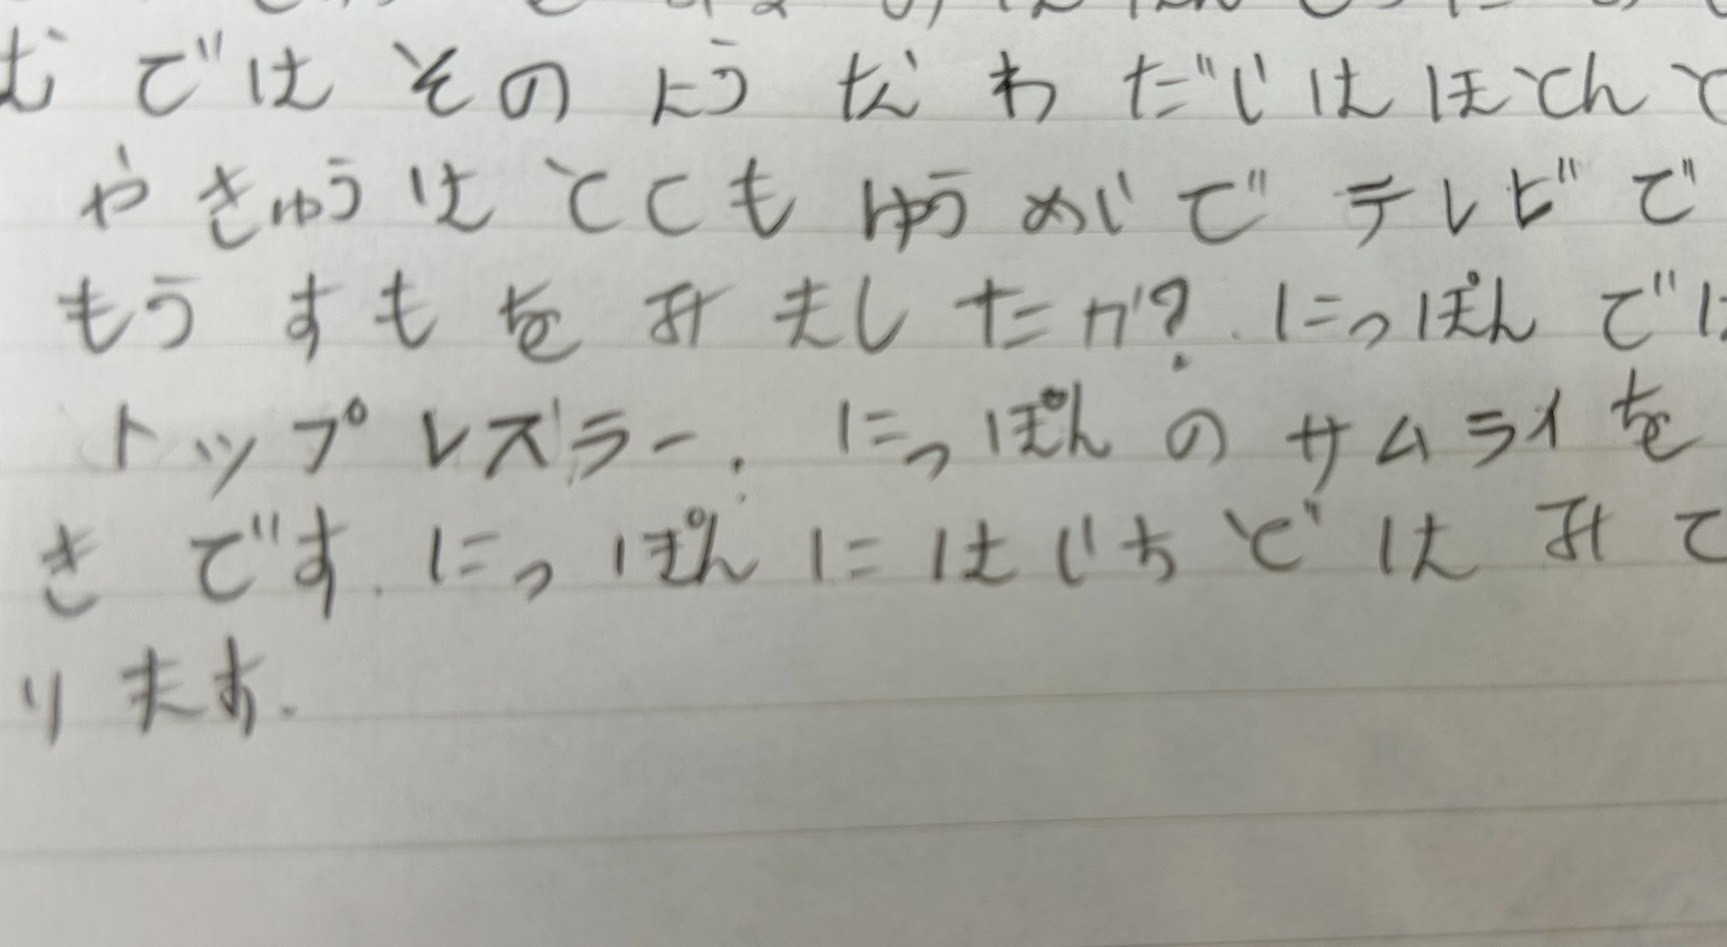 むではそのような わだいは ほとんど
やきゅうは とても ゆうめいで テレビで
もう すもを みましたか? にっぽんでは
トップレスラー. にっぽんの サムライを
きです. にっぽんに はいちどは みて
ります.